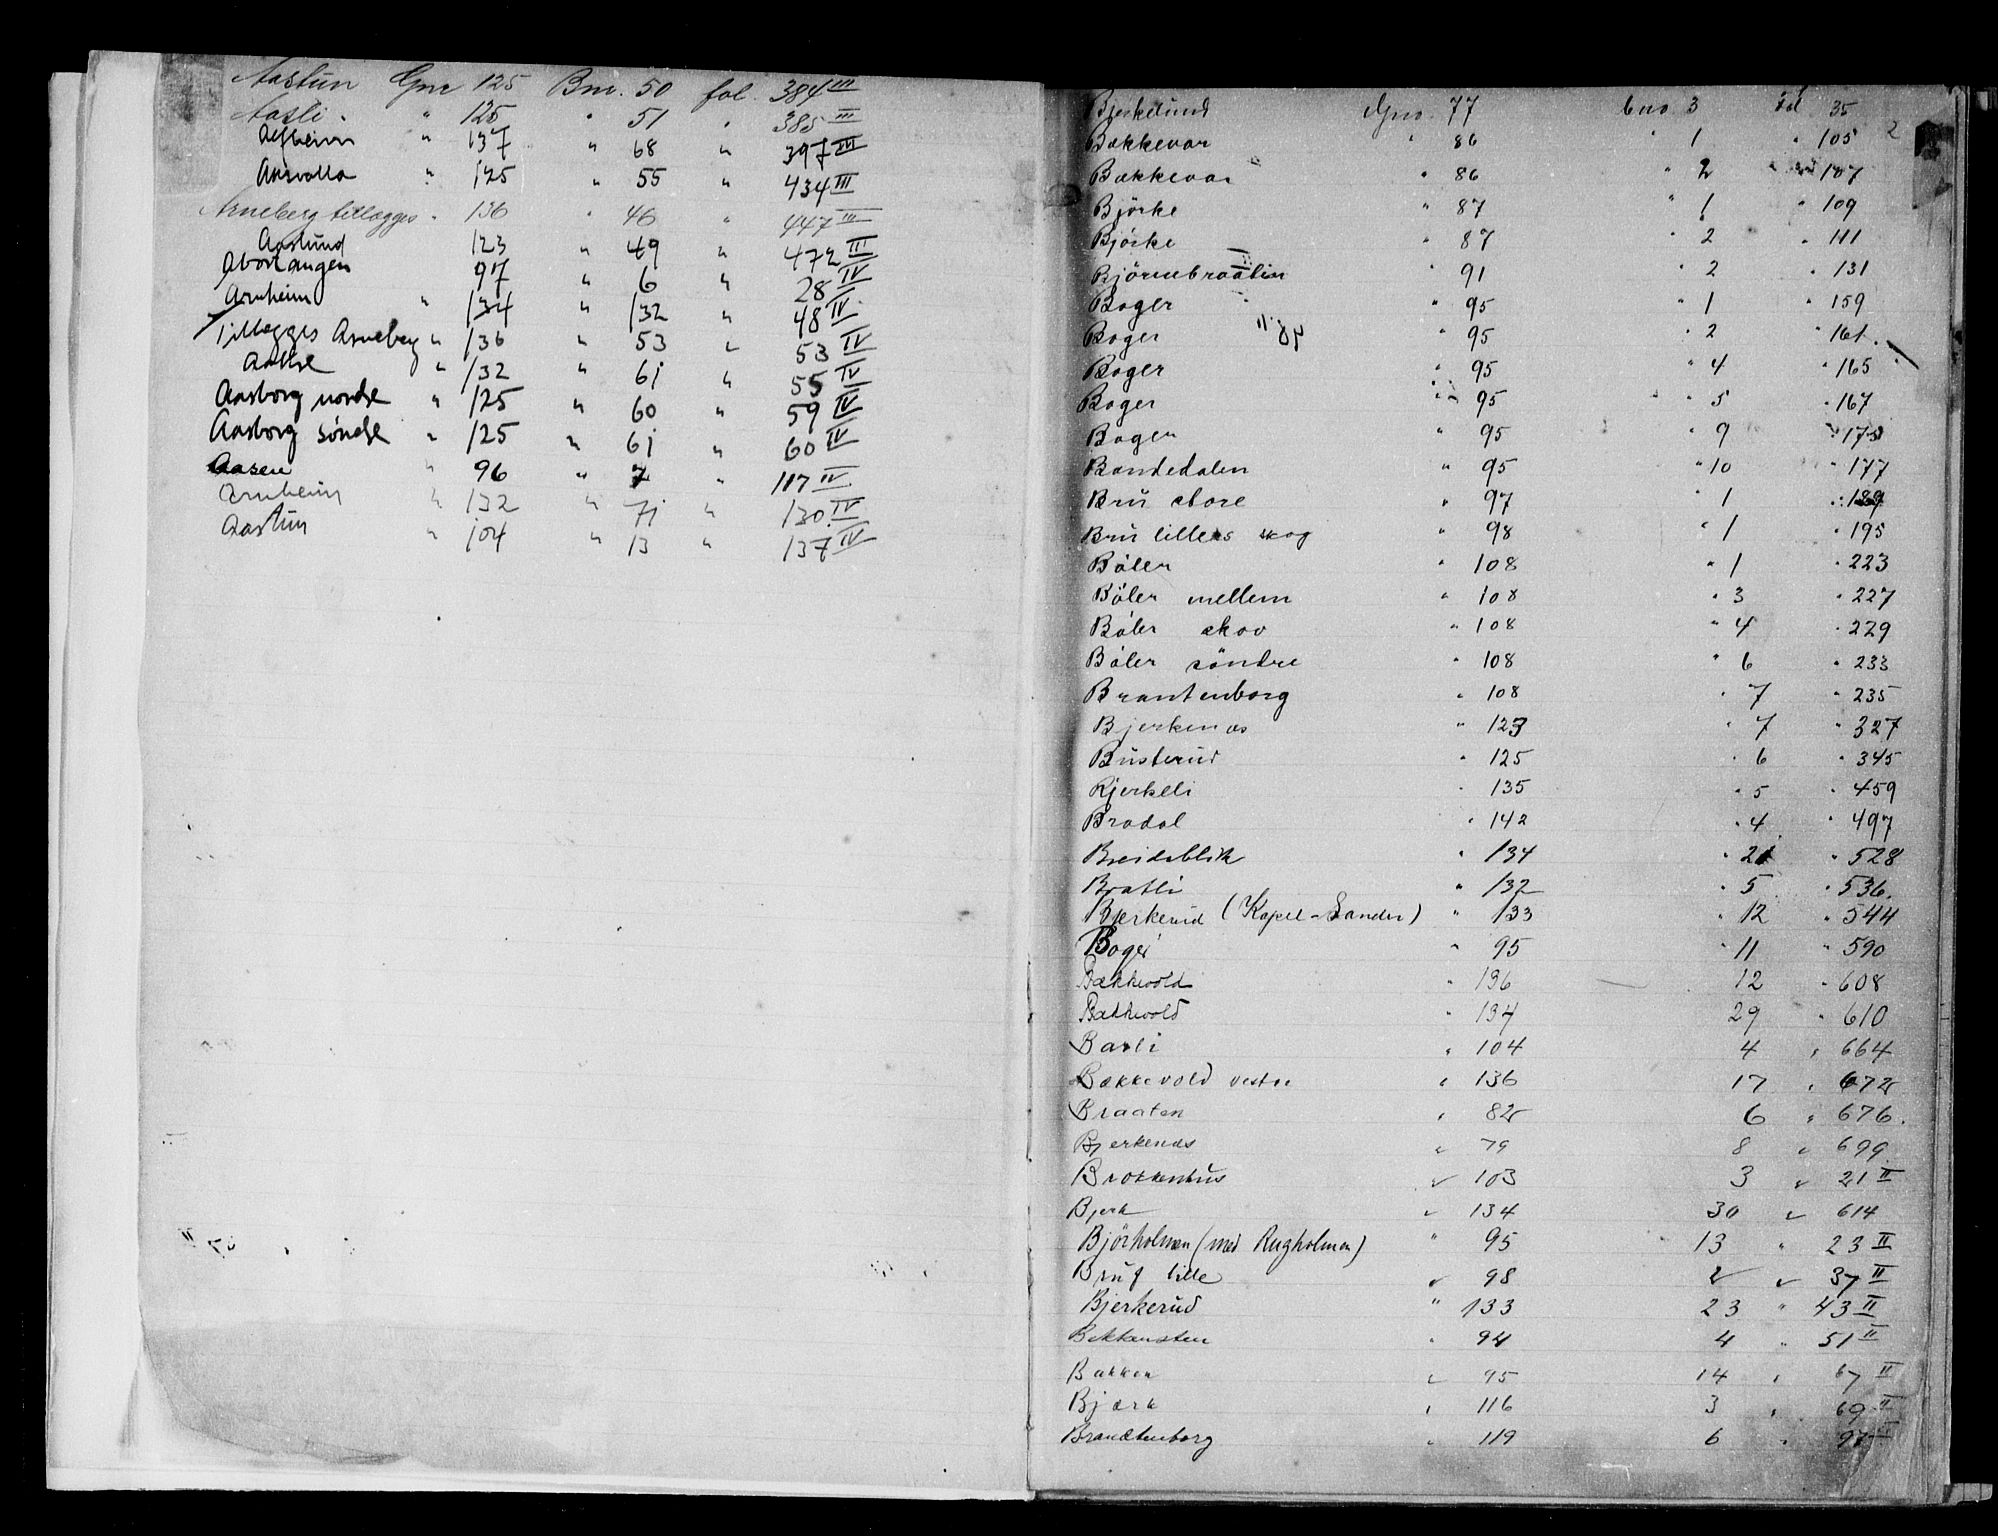 Aastun Gnr 125 Bnr. 50 fol. 384 III
Aasli " 125 " 51 " 385 III
Alfheim " 137 " 68 " 397 III
" 125 " 55 " 434 III
Arneberg tillægges " 136 " 46 " 447 III
Aaslund 123 " 49 " 472 III
Abortangen 97 " 6 " 28 IV
Arnheim " 134 " 132 " 48 IV
Tillægges Arneberg " 136 " 53 " 53 IV
" 132 " 61 " 55 IV
Aasborg nordre " 125 " 60 " 59 IV
Aasborg söndre " 125 " 61 " 60 IV
Aasen " 96 " 7 " 117 IV
Arnheim " 132 " 71 " 130 IV
Aastun " 104 " 13 " 137 IV
2
Bjerkelund Gno. 77 bno 3 fol 35
Bækkevar " 86 " 1 " 105
Bækkevar " 86 " 2 " 107
Björke " 87 " 1 " 109
Björke " 87 " 2 " 111
Björnebraatin " 91 " 2 " 131
Boger " 95 " 1 " 159
Boger " 95 " 2 " 161
Boger " 95 " 4 " 165
Boger " 95 " 5 " 167
Boger " 95 " 9 " 175
Bændedalen " 95 " 10 " 177
Bru store " 97 " 1 " 189
Bru lilles skog " 98 " 1 " 195
Böler " 108 " 1 " 223
Böler mellem " 108 " 3 " 227
Böler skov " 108 " 4 " 229
Böler söndre " 108 " 6 " 233
Brantenborg " 108 " 7 " 235
Bjerkenæs " 123 " 7 " 327
Busterud " 125 " 6 " 345
Bjerkeli " 135 " 5 " 459
Bradal " 142 " 4 " 497
Breidablik " 134 " 21 " 528
Bratli " 132 " 5 " 536.
Bjerkerud (Kapel-Sander) " 133 " 12 " 544
Boger " 95 " 11 " 590
Bækkevold " 136 12 " 608
Bækkevold " 134 29 " 610
" 104 4 " 664
Bækkevold vestre " 136 17 " 672
Braaten " 82 6 " 676.
Bjerkenæs " 79 8 " 699
Brokkenhus " 103 3 " 21 II
Bjerk " 134 30 " 614
Björholmen (med Rugholmen) " 95 13 " 23 II
Bruf lille " 98 2 " 37 II
Bjerkerud " 133 23 " 43 II
Bekkensten " 94 4 " 51 II
Bakken " 95 14 " 67 II
Bjærk " 116 3 " 69 II
Brandtenborg " 119 6 " 97 II